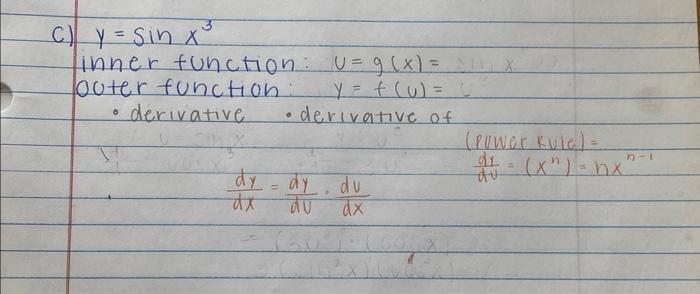 c) y = sin x³
inner function: u = g(x) =
outer function: y = f(u) =
• derivative • derivative of
(Power Rule) =
dy/du = (xⁿ) = nxⁿ⁻¹
dy/dx = dy/du · du/dx